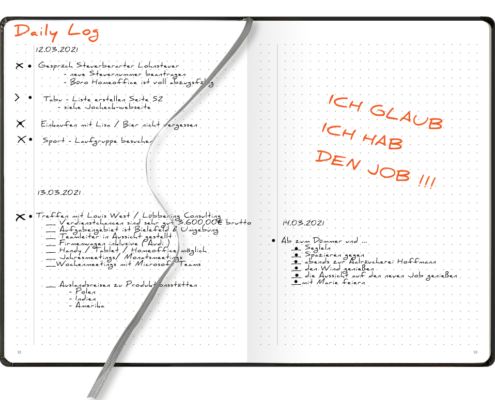 Daily Log
12.03.2021
× • Gespräch Steuerberater Lohnsteuer
- neue Steuernummer beantragen
- Büro Homeoffice ist voll abzugsfähig
> • Tabu - Liste erstellen Seite 52
- siehe Jocheck-webseite
× • Einkaufen mit Lisa / Bier nicht vergessen
× • Sport - Laufgruppe besuchen
13.03.2021
× • Treffen mit Louis West / Löbbering Consulting
__ Verdienstchancen sind sehr gut 3.600,00€ brutto
__ Aufgabengebiet ist Bielefeld & Umgebung
__ Teamleiter in Aussicht gestellt
__ Firmenwagen inklusive (Audi)
__ Handy / Tablet / Homeoffice möglich
__ Jahresmeetings/ Monatsmeetings
__ Wochenmeetings mit Microsoft Teams
__ Auslandsreisen zu Produktionsstätten
- Polen
- Indien
- Amerika
ICH GLAUB
ICH HAB
DEN JOB !!!
14.03.2021
• Ab zum Dümmer und ...
• Segeln
• Spazieren gegen
• abends zur Aalräucherei Hoffmann
• den Wind genießen
• die Aussicht auf den neuen Job genießen
• mit Marie feiern